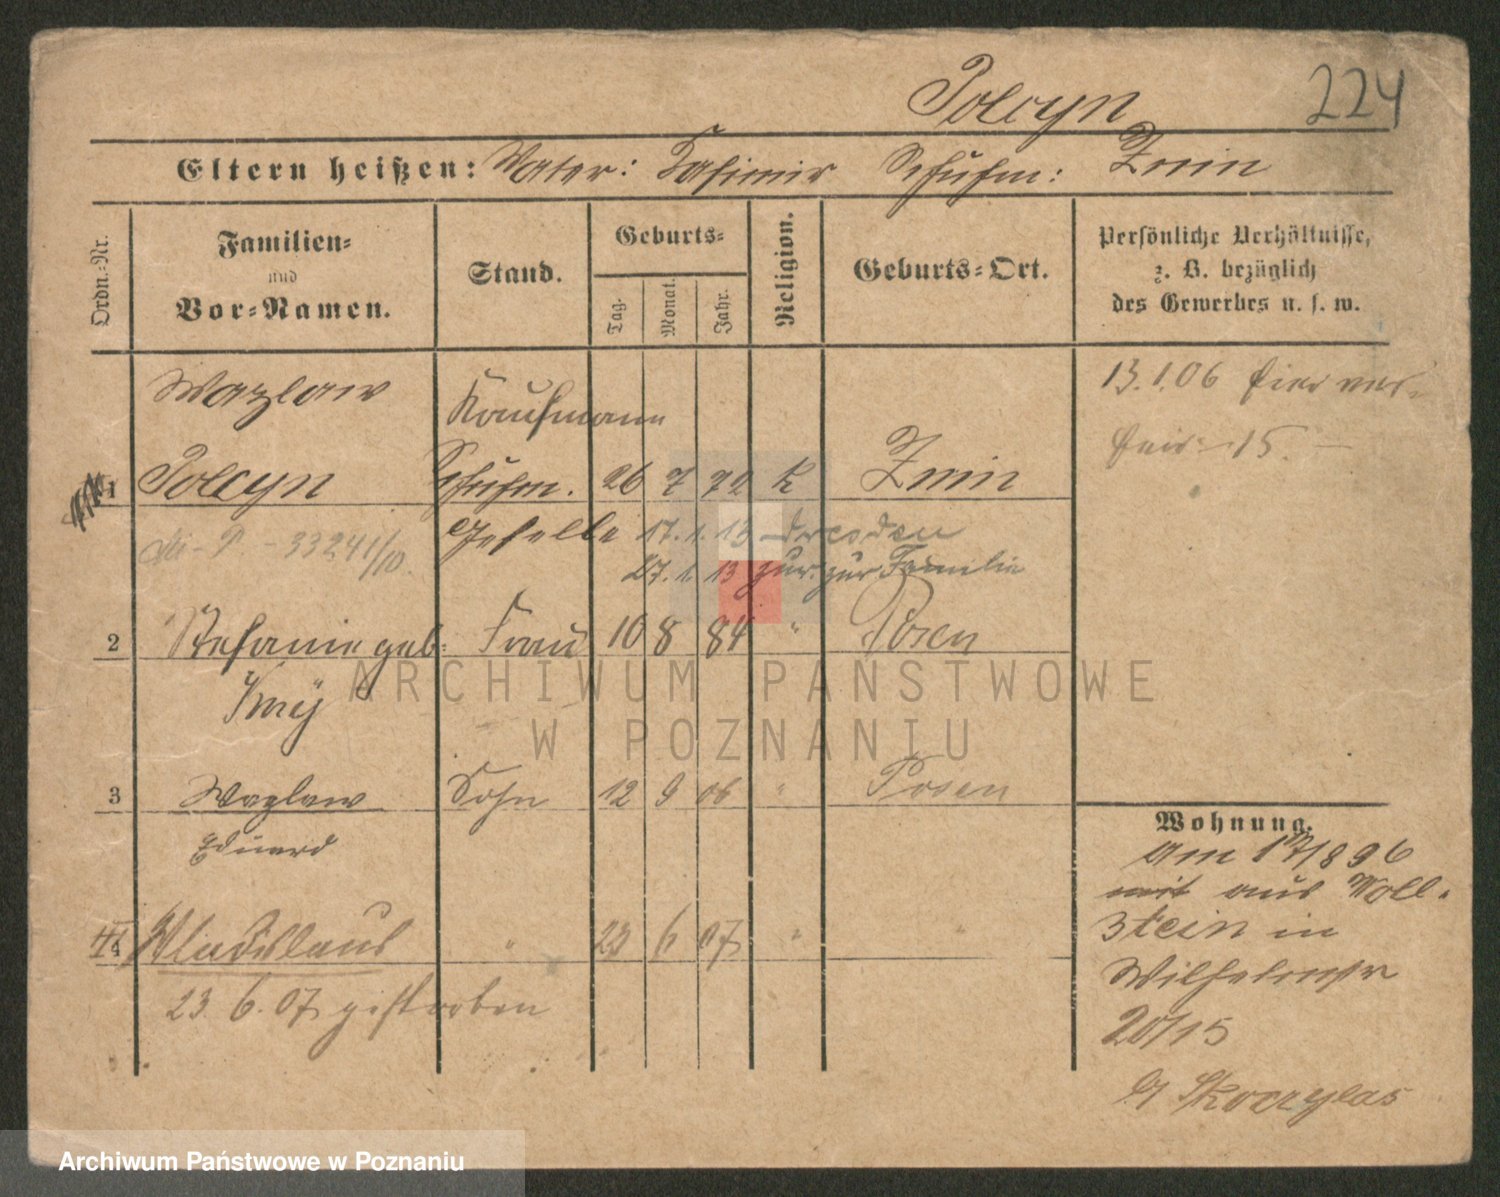 Polcyn 224
Eltern heißen: Vater: Kasimir Schuhm: Znin
Ordn.-Nr.
Familien-
und
Vor-Namen.
Stand.
Geburts-
Tag.
Monat.
Jahr.
Religion.
Geburts-Ort.
Persönliche Verhältnisse,
z. B. bezüglich
des Gewerbes u. s. w.
Wazlaw Kaufmann 13.1.06 hier
1 Polcyn Schuhm. 26 7 72 K Znin
15.
33241/10. Geselle 17.1.13 Dresden
27.1.13 zur. zur Familie
2 Stefanie geb: Frau 10 8 84 " Posen
3 Wazlaw Sohn 12 9 06 " Posen
Eduard
4 Wladislaus " 23 6 07 " "
23 6. 07 gestorben
Wohnung.
Am 17/8 96
mit aus Woll-
stein in
Wilhelmstr
20/15
Skoczylas
ARCHIWUM PAŃSTWOWE
W POZNANIU
Archiwum Państwowe w Poznaniu